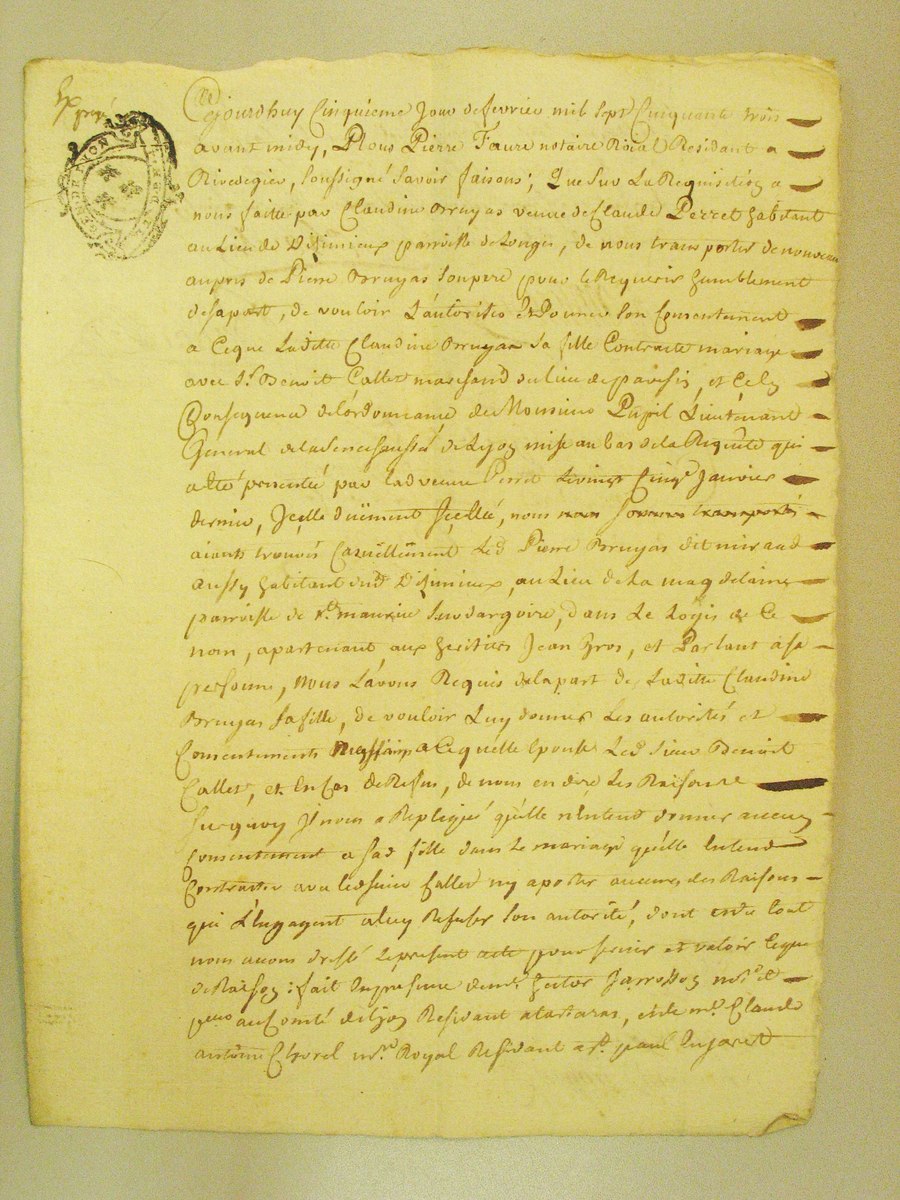 Ex
Cejourdhuy Cinquieme Jour de fevrier mil sept Cinquante trois
avant midy, Nous Pierre Faure notaire Roial Residant a
Rivedegier, soussigné savoir faisons; Que sur La Requisition a
nous faitte par Claudine Bruyas veuve de Claude Perret habitant
au Lieu de Disimieux parroisse de Longes, de nous transporter de nouveau
aupres de Pierre Bruyas son pere pour le Requerir humblement
de sa part, de vouloir L'autoriser et Donner son Consentement
a Ceque Laditte Claudine Bruyas sa fille Contracte mariage
avec Sr. Benoit Callet marchand du lieu de pavesin, et Cela En
Consequence de l'ordonnance de Monsieur Pupil Lieutenant
General de la senechaussée de Lyon mise au bas de la Requette qui
a été presentée par lad veuve Perret le vingt Cinq Janvier
dernier, Jcelle düement scellée, nous nous sommes transportés
aiants trouvés Casuellement Led Pierre Bruyas dit mirand
aussy habitant aud Disimieux, au Lieu de La magdelaine
parroisse de St. maurice sur dargoire, dans Le Logis de Ce
nom, apartenant aux heritiers Jean Gros, et Parlant a sa
personne, nous L'avons Requis de la part de Laditte Claudine
Bruyas sa fille, de vouloir Luy donner Les autorités et
Consentements Necessaires a Cequ'elle Epouse Led sieur Benoit
Callet, et En Cas de Refus, de nous en dire Les Raisons
Surquoy Jl nous a Repliqué qu'elle n'Entend donner aucun
Consentement a sad fille dans Le mariage qu'elle Entend
Contracter avec led sieur Callet ny aporter aucunes des Raisons
qui L'engagent a luy Refuser son autorité, dont et du tout
nous avons dressé Le present acte pour servir et valoir Ceque
de Raison: fait En presence de mr. hector Jarrosson nre. et
au Comté de Lyon Residant a tartaras, et de mr. Claude
antoine Chorel nre. Royal Residant a St. paul En Jarest